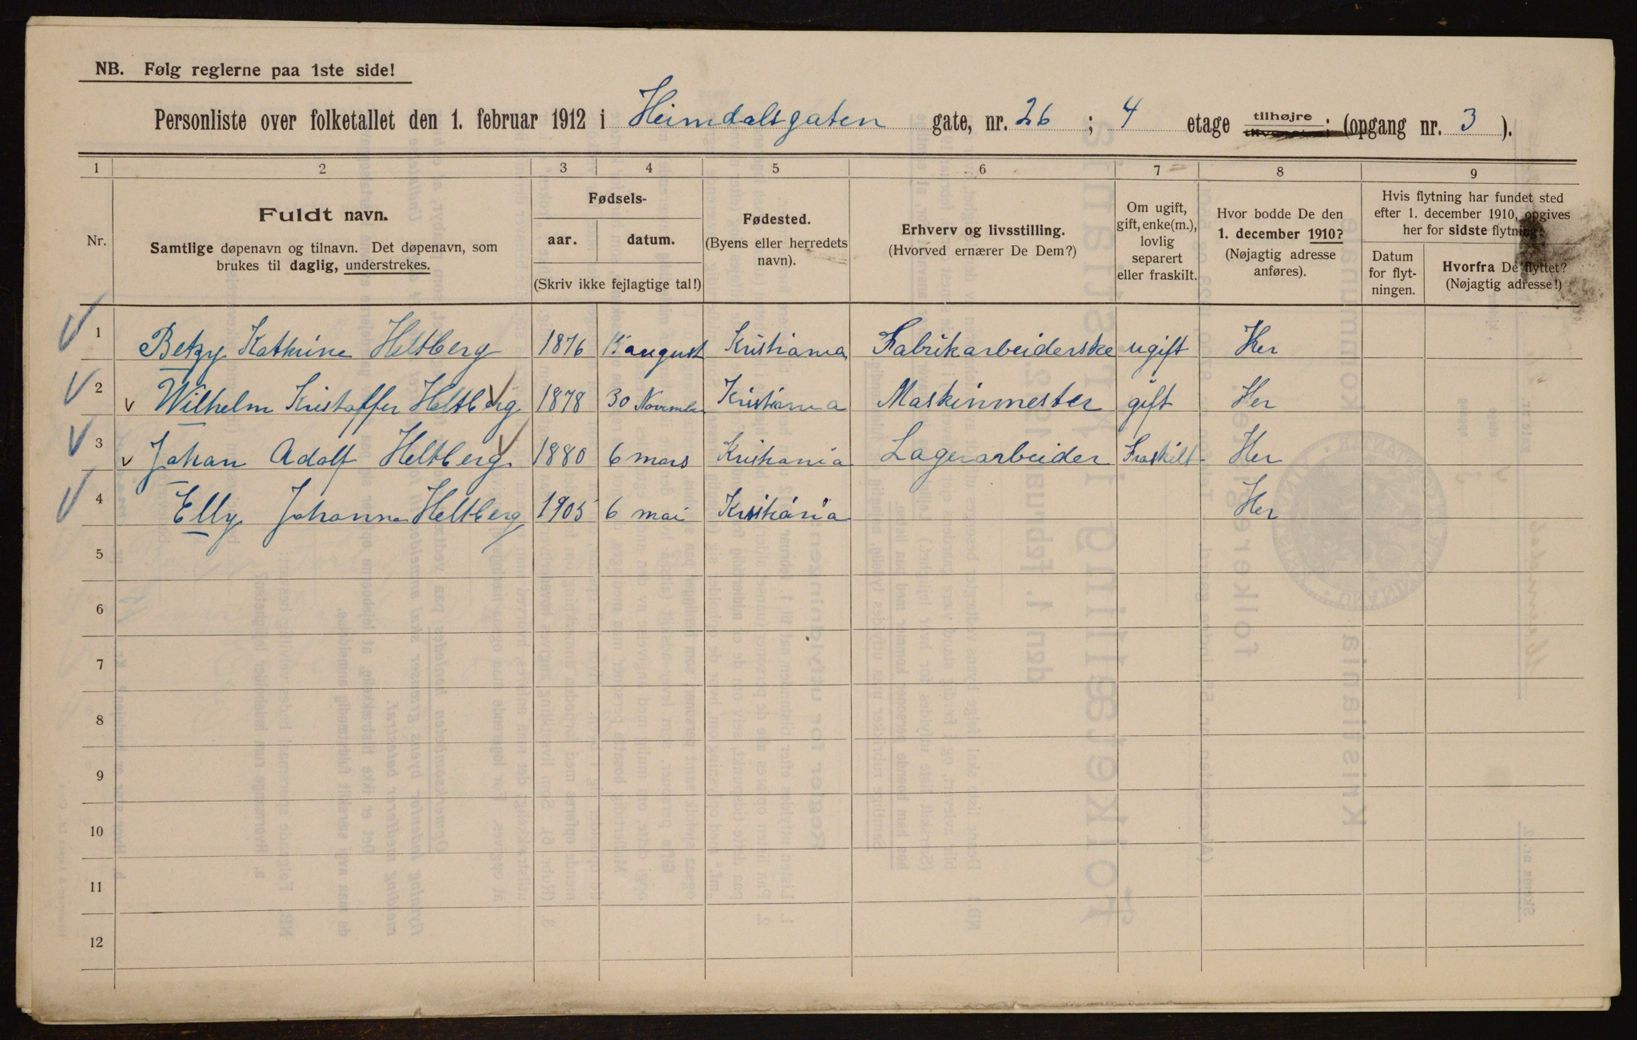 NB. Følg reglerne paa 1ste side!
Personliste over folketallet den 1. februar 1912 i Heimdalsgaten gate, nr. 26 ; 4 etage tilhøjre, (opgang nr. 3 ).
1 2 3 4 5 6 7 8 9
Nr.
Fuldt navn.
Samtlige døpenavn og tilnavn. Det døpenavn, som
brukes til daglig, understrekes.
Fødsels-
aar. datum.
(Skriv ikke fejlagtige tal!)
Fødested.
(Byens eller herredets
navn).
Erhverv og livsstilling.
(Hvorved ernærer De Dem?)
Om ugift,
gift, enke(m.),
lovlig
separert
eller fraskilt.
Hvor bodde De den
1. december 1910?
(Nøjagtig adresse
anføres).
Hvis flytning har fundet sted
efter 1. december 1910, opgives
her for sidste flytning:
Datum
for flyt-
ningen.
Hvorfra De flyttet?
(Nøjagtig adresse!)
1 Betzy Katrine Heltberg 1876 15 august Kristiania Fabrikarbeiderske ugift Her
2 v Wilhelm Kristoffer Heltberg 1878 30 November Kristiania Maskinmester gift Her
3 v Johan Adolf Heltberg 1880 6 mars Kristiania Lagerarbeider Fraskilt Her
4 Elly Johanne Heltberg 1905 6 mai Kristiania Her
5
6
7
8
9
10
11
12